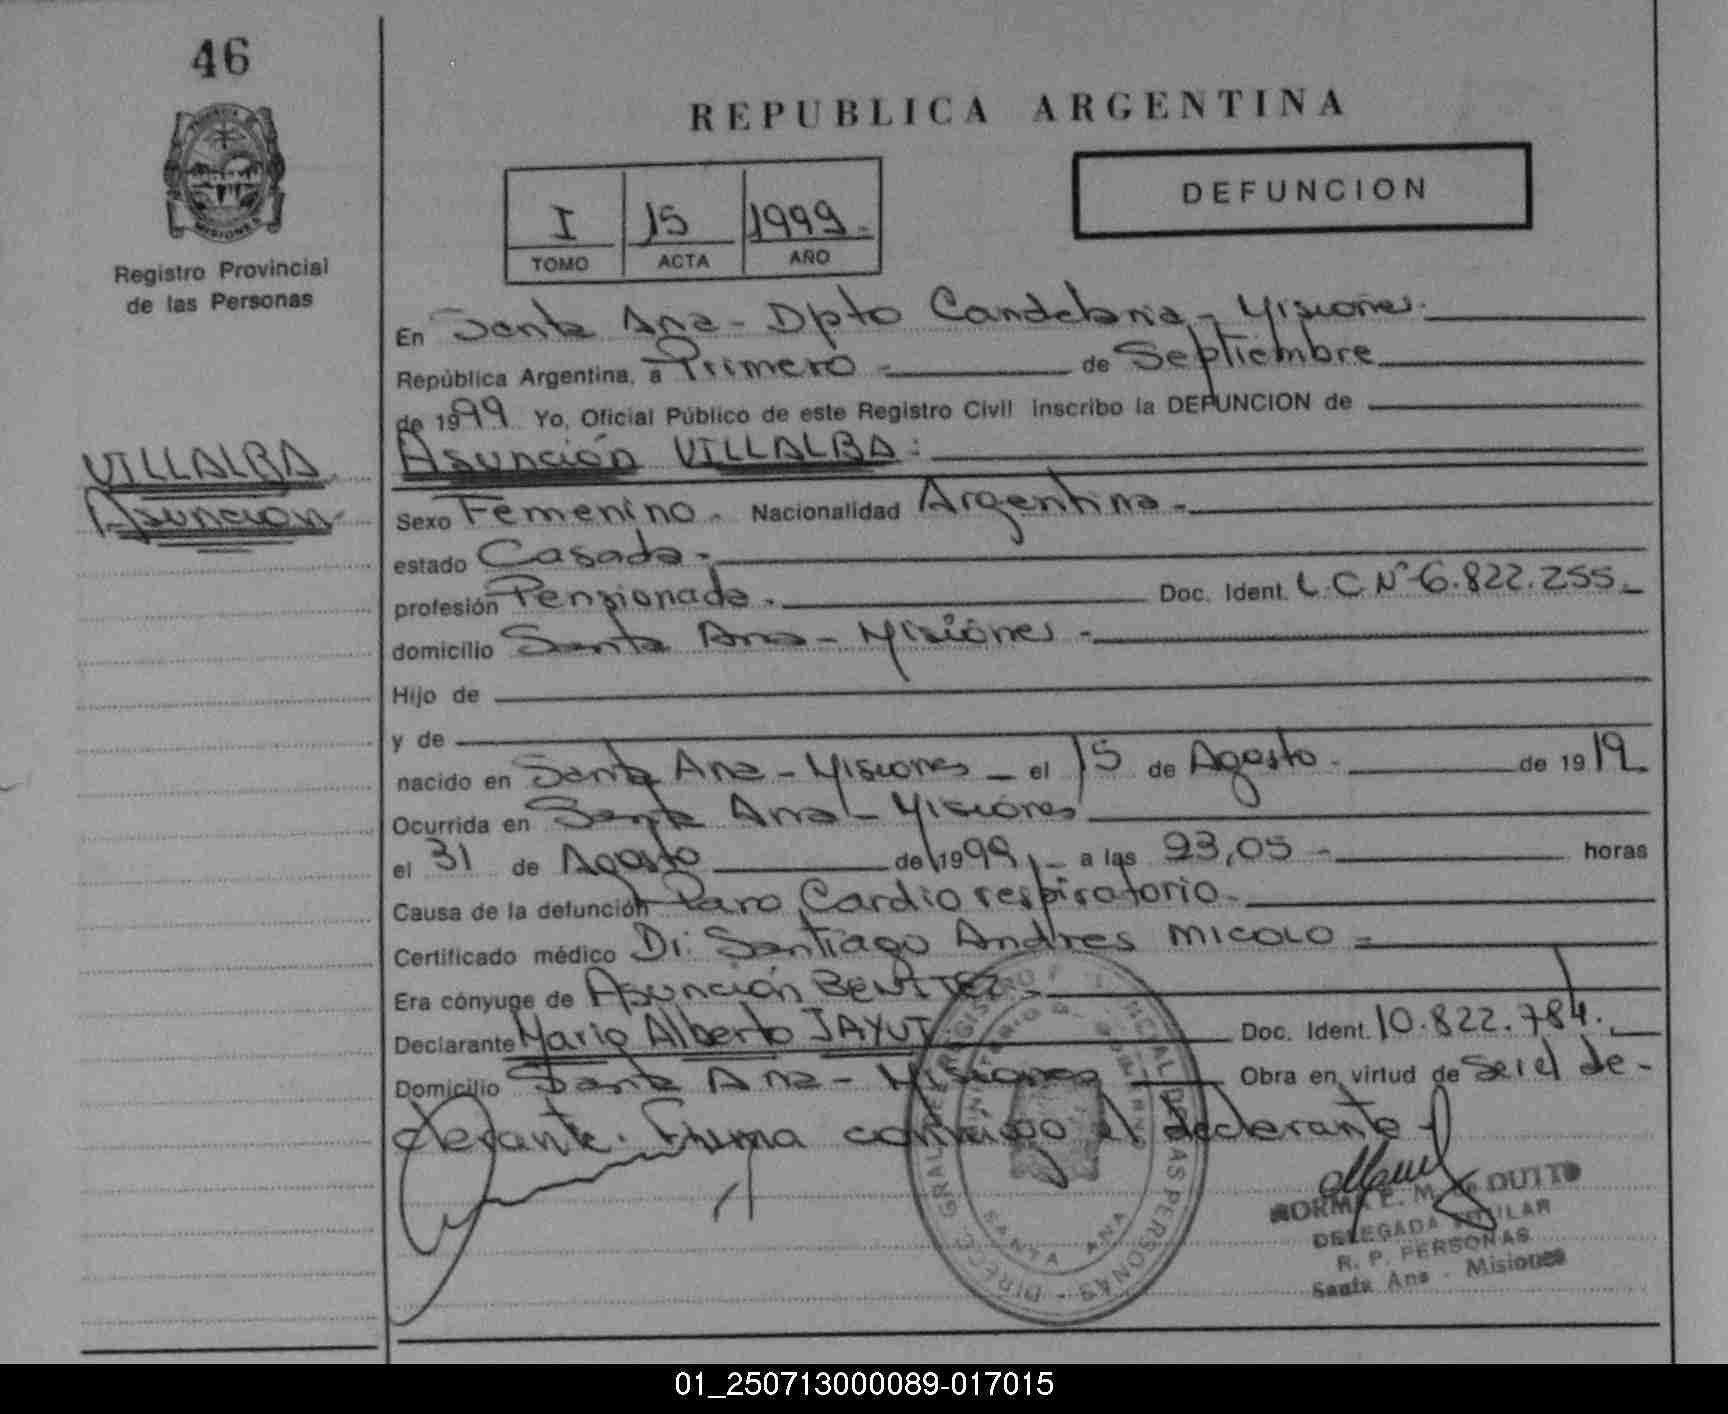 46
MISIONES
Registro Provincial
de las Personas
REPUBLICA ARGENTINA
I 15 1999.
TOMO ACTA AÑO
DEFUNCION
En Santa Ana - Dpto Candelaria - Misiones.
República Argentina, a Primero - de Septiembre
de 1999 Yo, Oficial Público de este Registro Civil inscribo la DEFUNCION de
VILLALBA
Asunción VILLALBA:
Asuncion
Sexo Femenino. Nacionalidad Argentina -
estado Casada -
profesión Pensionada. Doc. Ident. L.C Nº 6.822.255.
domicilio Santa Ana - Misiónes -
Hijo de
y de
nacido en Santa Ana - Misiones - el 15 de Agosto - de 1919
Ocurrida en Santa Ana - Misiones
el 31 de Agosto de 1999, - a las 23,05 - horas
Causa de la defunción Paro Cardiorespiratorio -
Certificado médico Dr. Santiago Andres MICOLO =
Era cónyuge de Asunción BENITEZ -
Declarante Mario Alberto JAYUT Doc. Ident. 10.822.784.
Domicilio Santa Ana - Misiones Obra en virtud de ser el de-
clarante. Firma conmigo el declarante
DIRECC. GRAL. DE REGISTRO PROVINCIAL DE LAS PERSONAS
SANTA ANA
NORMA E. M. de DUTTO
DELEGADA TITULAR
R. P. PERSONAS
Santa Ana - Misiones
01_250713000089-017015